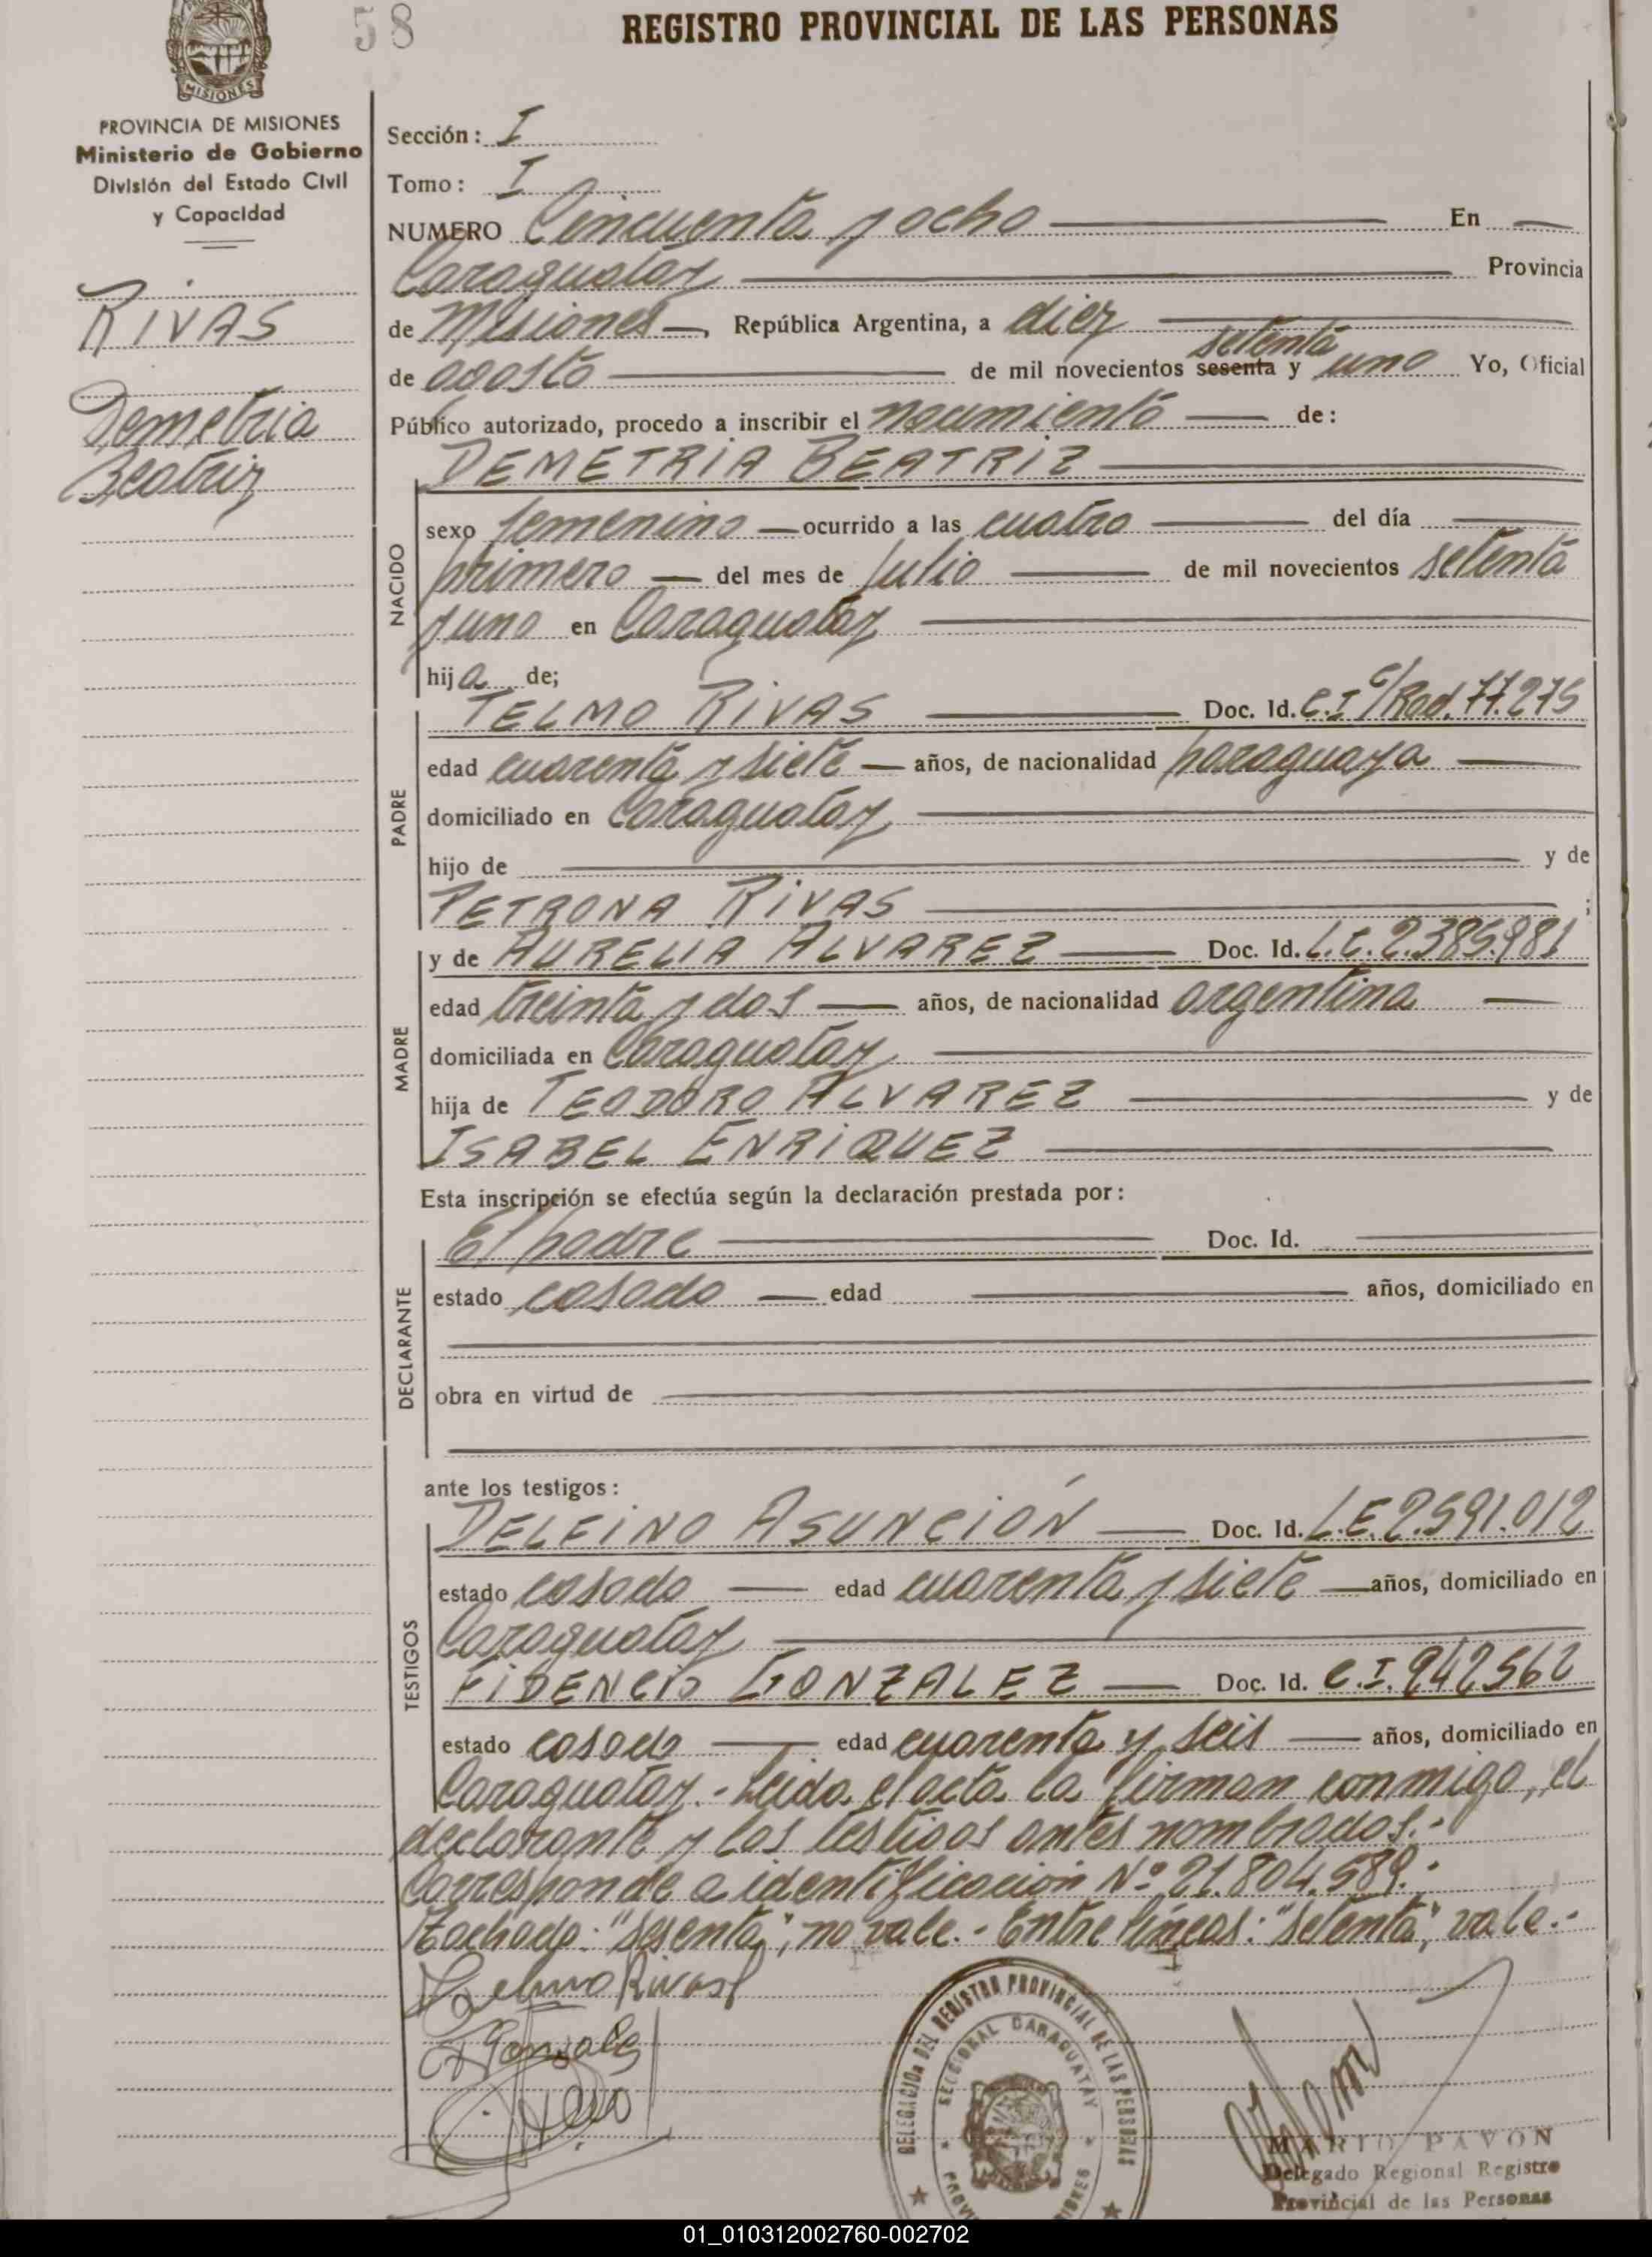 58
REGISTRO PROVINCIAL DE LAS PERSONAS
MISIONES
PROVINCIA DE MISIONES
Ministerio de Gobierno
División del Estado Civil
y Capacidad
RIVAS
Demetria
Beatriz
Sección: I
Tomo: I
NUMERO Cincuenta y ocho En
Caraguatay Provincia
de Misiones, República Argentina, a diez
setenta
de agosto de mil novecientos sesenta y uno Yo, Oficial
Público autorizado, procedo a inscribir el nacimiento de:
DEMETRIA BEATRIZ
NACIDO
sexo femenino ocurrido a las cuatro del día
primero del mes de Julio de mil novecientos setenta
y uno en Caraguatay
hija de;
PADRE
TELMO RIVAS Doc. Id. C.I. c/Rad. 77.275
edad cuarenta y siete años, de nacionalidad paraguaya
domiciliado en Caraguatay
hijo de y de
PETRONA RIVAS ;
MADRE
y de AURELIA ALVAREZ Doc. Id. L.C. 2.385.981
edad treinta y dos años, de nacionalidad argentina
domiciliada en Caraguatay
hija de TEODORO ALVAREZ y de
ISABEL ENRIQUEZ
Esta inscripción se efectúa según la declaración prestada por:
DECLARANTE
El padre Doc. Id.
estado casado edad años, domiciliado en
obra en virtud de
ante los testigos:
TESTIGOS
DELFINO ASUNCIÓN Doc. Id. L.E. 2.591.012
estado casado edad cuarenta y siete años, domiciliado en
Caraguatay
FIDENCIO GONZALEZ Doc. Id. C.I. 242562
estado casado edad cuarenta y seis años, domiciliado en
Caraguatay.- Leída el acta la firman conmigo, el
declarante y los testigos antes nombrados.-
Corresponde a identificación Nº 21.804.589.-
Tachado: "sesenta"; no vale.- Entre líneas: "setenta", vale.-
Telmo Rivas
F Gonzalez
DELEGACION DEL REGISTRO PROVINCIAL DE LAS PERSONAS
SECCIONAL CARAGUATAY
MARIO PAVON
Delegado Regional Registro
Provincial de las Personas
01_010312002760-002702